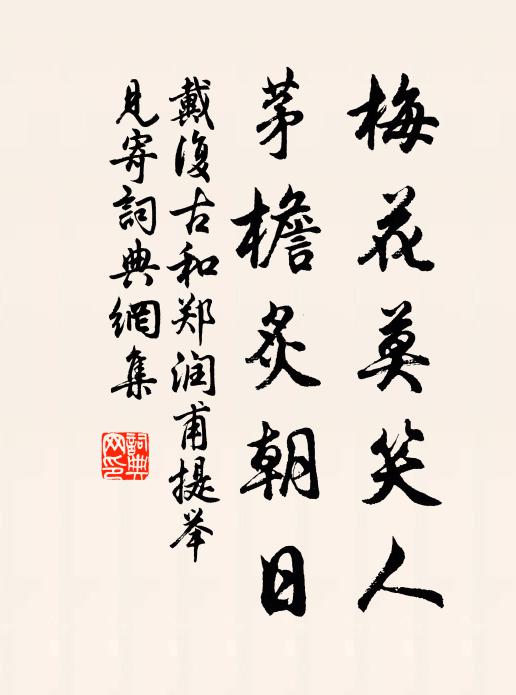 梅花莫笑人
茅檐炙朝日
戴復古和郑润甫提举
見寄詞典網集
詞典网印